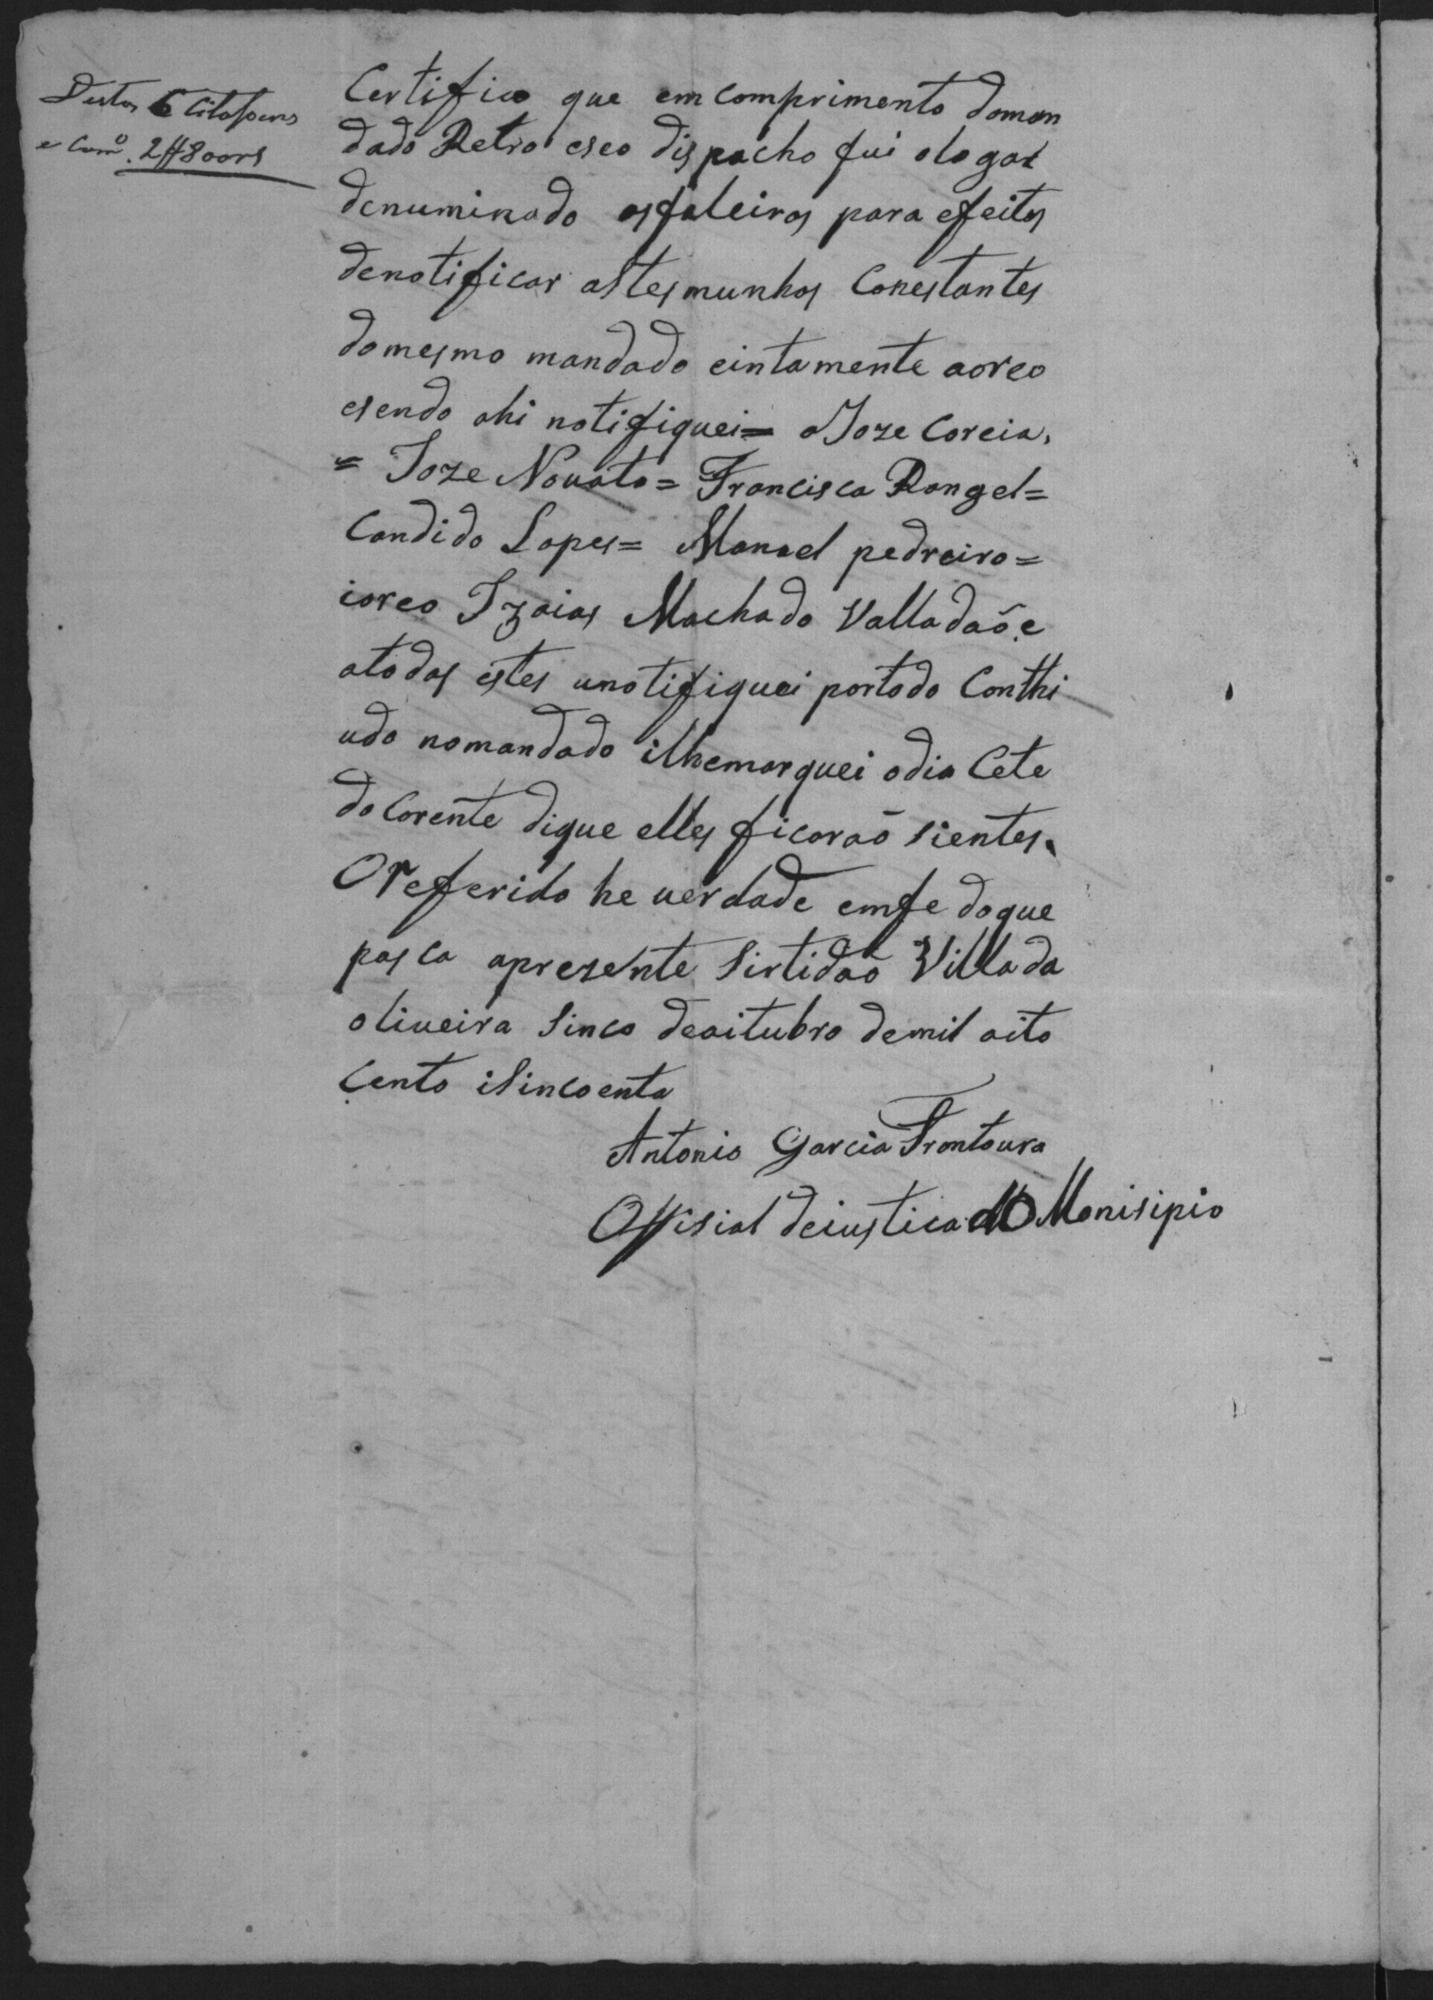 Destas 6 Citasoens
e Camo. 2#800rs
Certifico que em comprimento doman
dado Retro eseo dispacho fui olugar
denuminado osfaleiros para efeitos
denotificar astesmunhas Conestantes
domesmo mandado eintamente aoreo
esendo ahi notifiquei= oJoze Coreia,
= Joze Novato= Francisca Rangel=
Candido Lopes= Manoel pedreiro=
ioreo Izaias Machado Valladaõ, e
atodas estes unotifiquei portodo Conthi
udo nomandado ilhemarquei odia Cete
do Corente dique elles ficaraõ Sientes.
O referido he verdade emfe doque
pasca apresente Sirtidaõ Villa da
oliveira Sinco deoitubro demil oito
Cento iSincoenta
Antonio Garcia Frontoura
Offisial deiustica do Monisipio